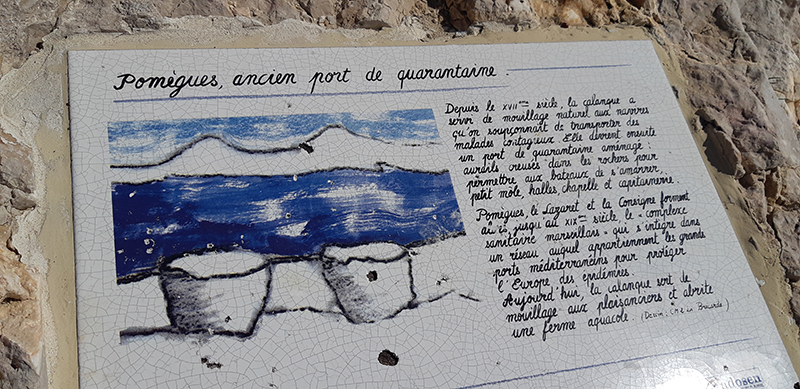 Pomègues, ancien port de quarantaine.
Depuis le XVII ème siècle, la calanque a
servir de mouillage naturel aux navires
qu'on soupçonnait de transporter des
malades contagieux. Elle devient ensuite
un port de quarantaine aménagé :
creusés dans les rochers pour
permettre aux bateaux de s'amarrer,
petit môle, halles, chapelle et capitainerie.
Pomègues, le Lazaret et la Consigne forment
jusqu'au XIX ème siècle, le "complexe
sanitaire marseillais" qui s'intègre dans
un réseau auquel appartiennent les grands
ports méditerranéens pour protéger
l'Europe des épidémies.
Aujourd'hui, la calanque sert de
mouillage aux plaisanciers et abrite
une ferme aquacole. (Dessin : CM2